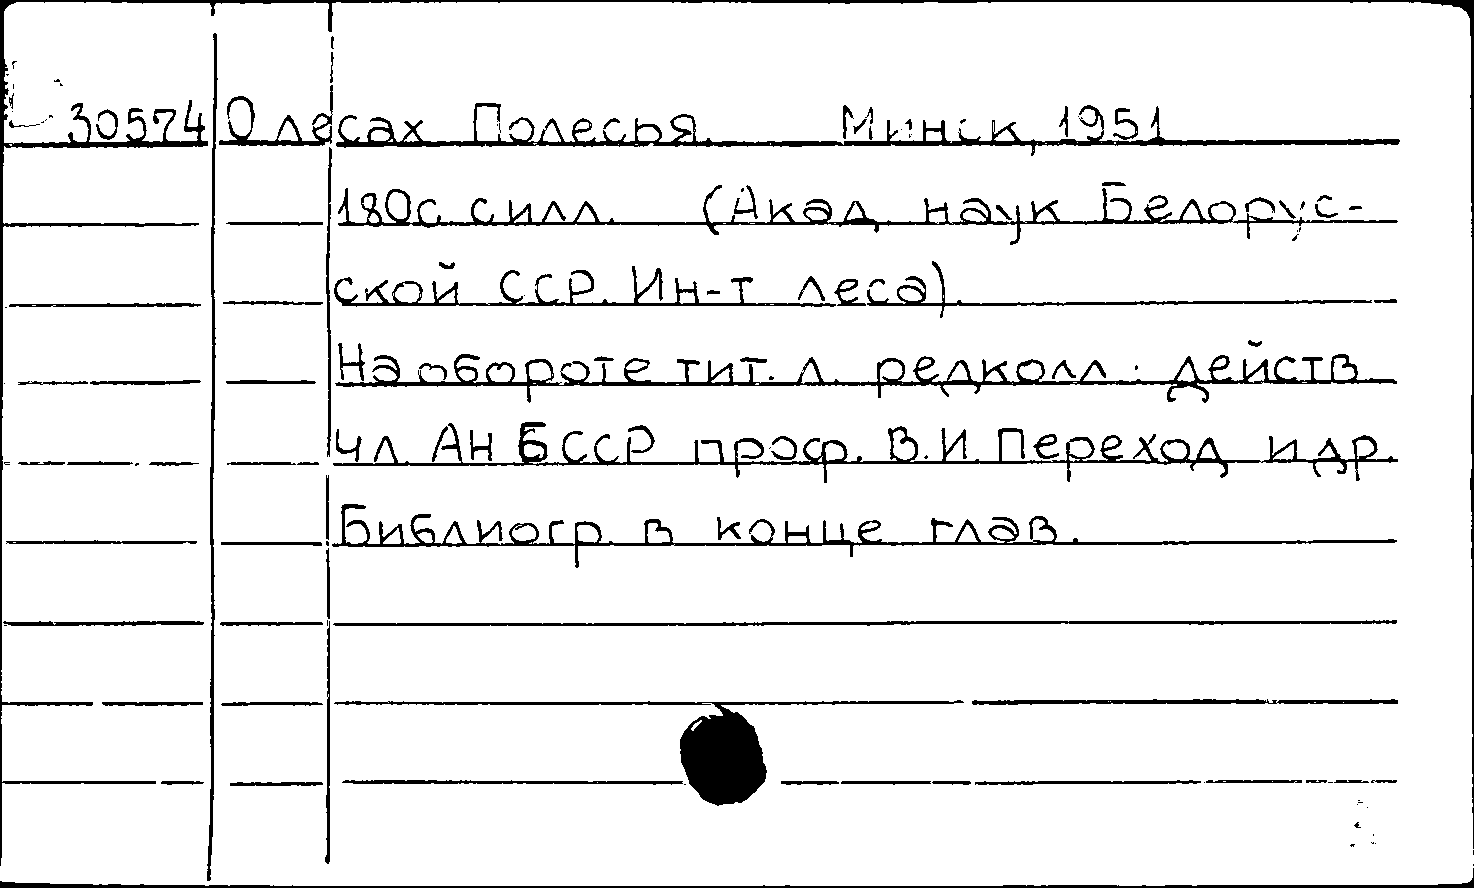 30574 О лесах Полесья. Минск, 1951
180с. с илл. (Акад. наук Белорус-
ской ССР. Ин-т леса).
На обороте тит. л. редколл: действ.
чл. АН БССР проф. В.И. Переход и др.
Библиогр. в конце глав.